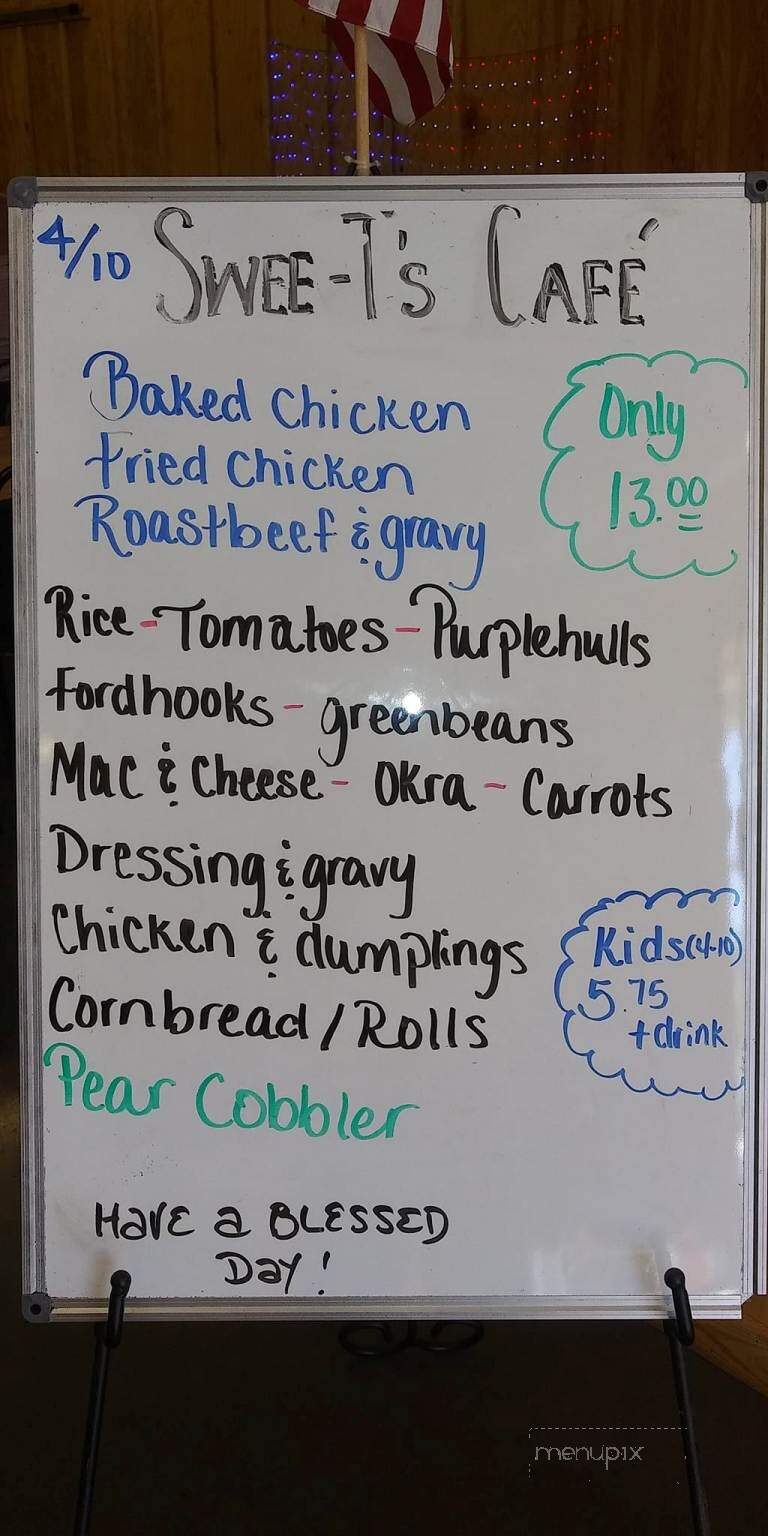 4/10 SWEE-T's CAFÉ
Baked Chicken
Fried Chicken
Roastbeef & gravy
Only
13.00
Rice - Tomatoes - Purplehulls
Fordhooks - greenbeans
Mac & Cheese - Okra - Carrots
Dressing & gravy
Chicken & dumplings
Cornbread / Rolls
Kids (4-10)
5.75
+ drink
Pear Cobbler
HAVE a BLESSED
Day!
menupix